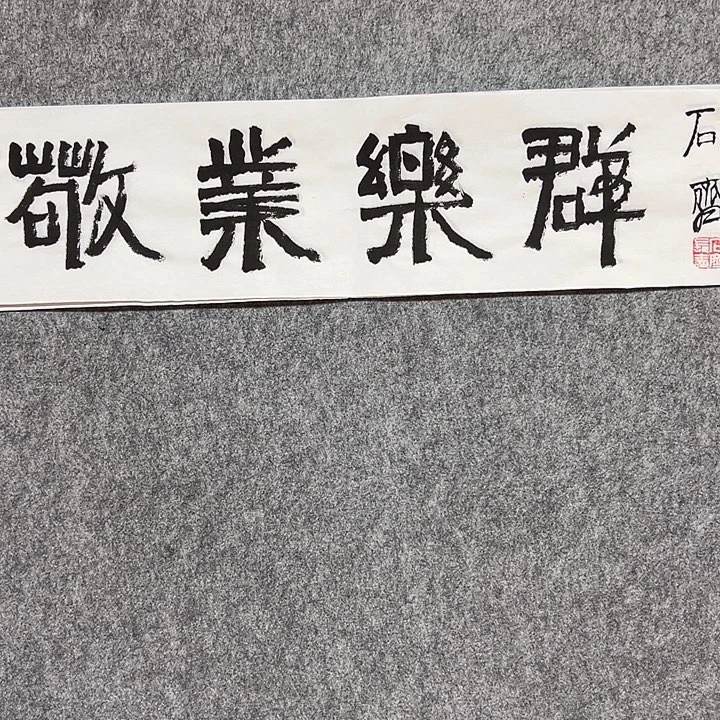 敬業樂群
石齊